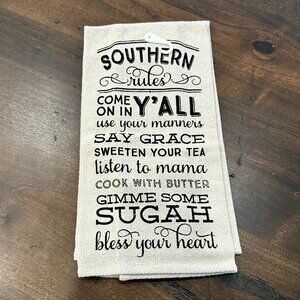 SOUTHERN
rules
COME
ON IN Y'ALL
use your manners
SAY GRACE
SWEETEN YOUR TEA
listen to mama
COOK WITH BUTTER
GIMME SOME
SUGAH
bless your heart